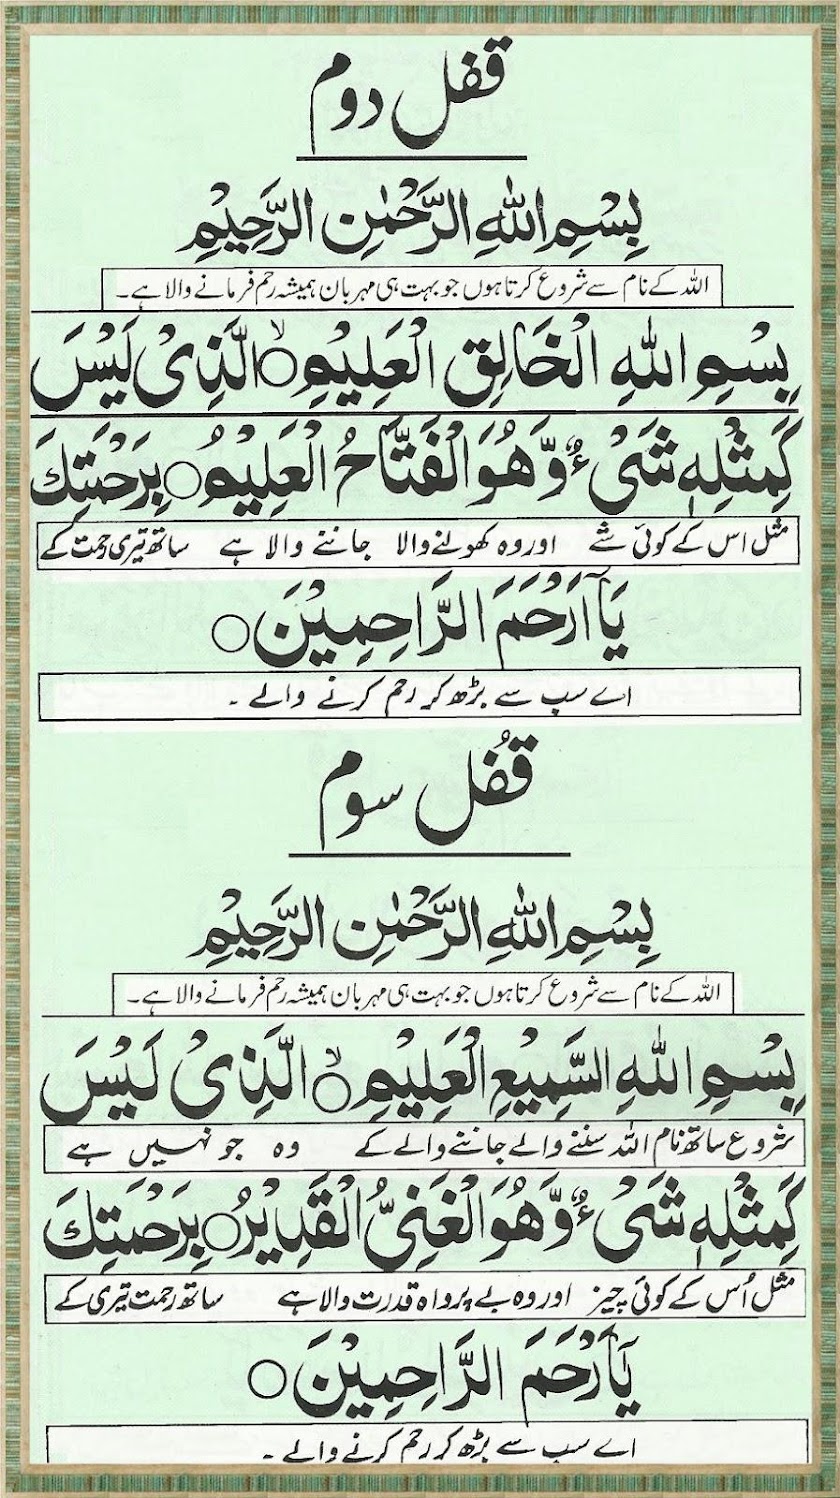 قفل دوم
بِسْمِ اللهِ الرَّحْمٰنِ الرَّحِيْمِ
اللہ کے نام سے شروع کرتا ہوں جو بہت ہی مہربان ہمیشہ رحم فرمانے والا ہے۔
بِسْمِ اللهِ الْخَالِقِ الْعَلِيْمِ ۙ الَّذِىْ لَيْسَ
كَمِثْلِهٖ شَىْءٌ وَّهُوَ الْفَتَّاحُ الْعَلِيْمُ ○ بِرَحْمَتِكَ
مثل اس کے کوئی شے اور وہ کھولنے والا جاننے والا ہے ساتھ تیری رحمت کے
يَآ اَرْحَمَ الرَّاحِمِيْنَ ○
اے سب سے بڑھ کر رحم کرنے والے۔
قُفل سوم
بِسْمِ اللهِ الرَّحْمٰنِ الرَّحِيْمِ
اللہ کے نام سے شروع کرتا ہوں جو بہت ہی مہربان ہمیشہ رحم فرمانے والا ہے۔
بِسْمِ اللهِ السَّمِيْعِ الْعَلِيْمِ ۙ الَّذِىْ لَيْسَ
شروع ساتھ نام اللہ سننے والے جاننے والے کے وہ جو نہیں ہے
كَمِثْلِهٖ شَىْءٌ وَّهُوَ الْغَنِىُّ الْقَدِيْرُ ○ بِرَحْمَتِكَ
مثل اُس کے کوئی چیز اور وہ بے پرواہ قدرت والا ہے ساتھ رحمت تیری کے
يَآ اَرْحَمَ الرَّاحِمِيْنَ ○
اے سب سے بڑھ کر رحم کرنے والے۔